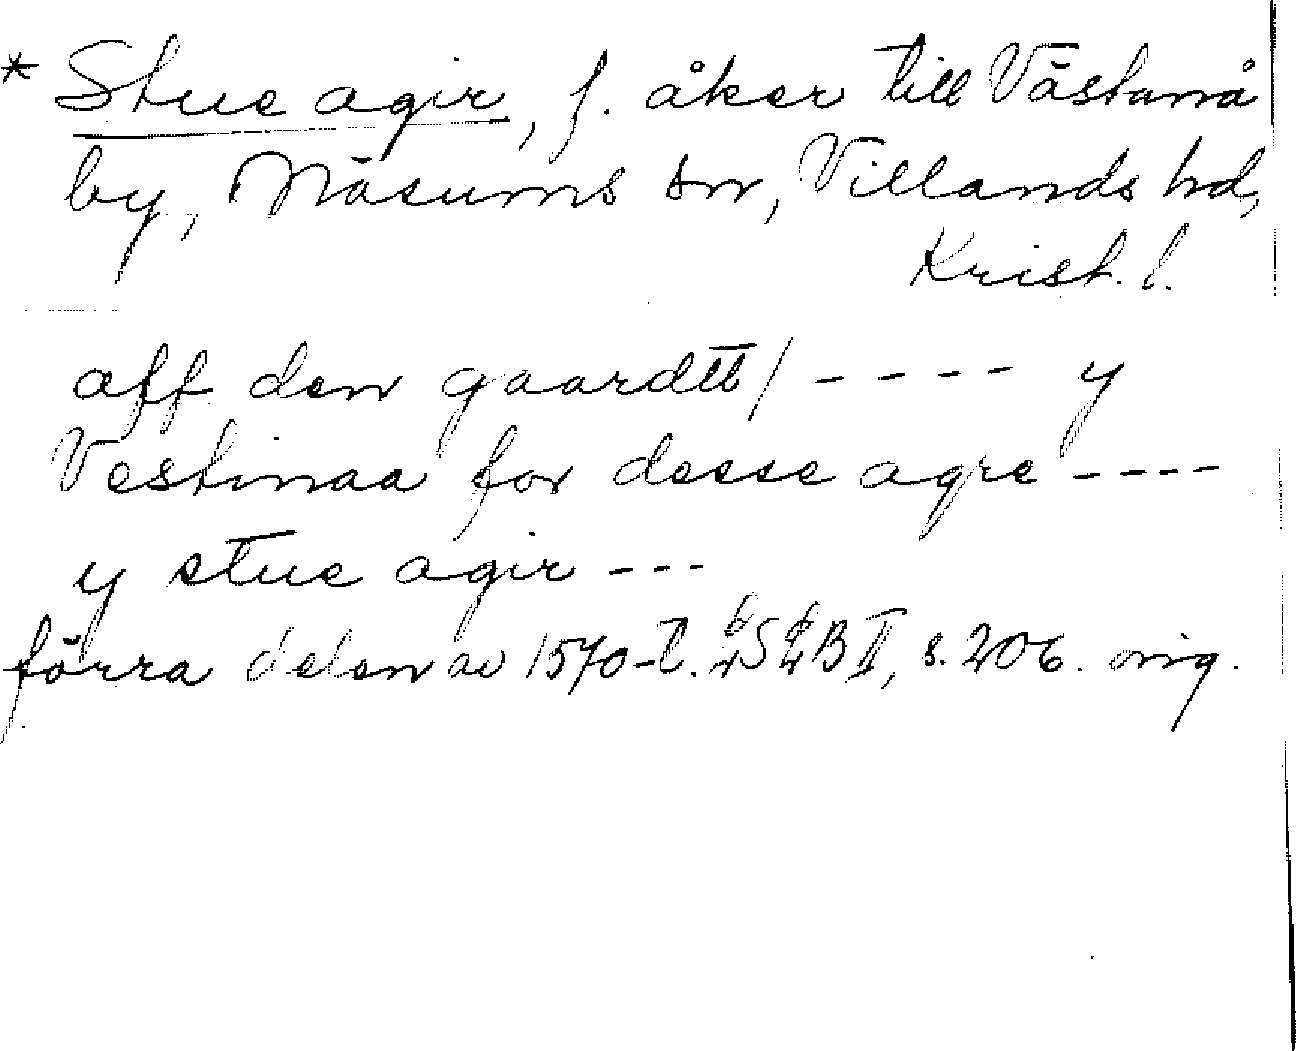 * Stue agir, f. åker till Västanå
by, Näsums sn, Villands hd,
Krist. l.
aff den gaardtt/ ---- y
Vestinaa for desse agre ----
y stue agir ---
förra delen av 1570-t. LSLB II, s. 206. orig.